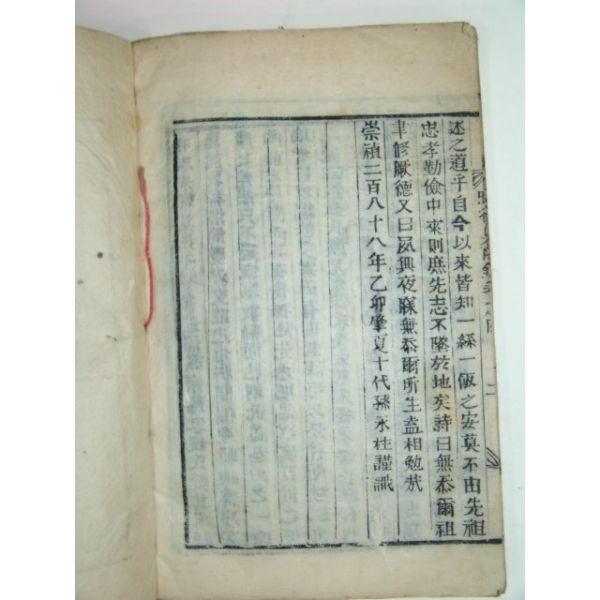 述之道乎自今以來皆知一絲一飯之安莫不由先祖
忠孝勤儉中來則庶先志不墜於地矣詩曰無忝爾祖
聿修厥德又曰夙興夜寐無忝爾所生盍相勉哉
崇禎二百八十八年乙卯肇夏十代孫永柱謹識